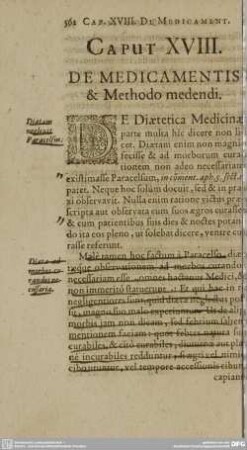 562 CAP. XVIII. DE MEDICAMENT.
CAPUT XVIII.
DE MEDICAMENTIS
& Methodo medendi.
Diætam
neglexit
Paracelsus.
DE Diætetica Medicinæ
parte multa hic dicere non li
cet. Diætam enim non magni
fecisse & ad morborum cura
tionem non adeo necessariam
existimasse Paracelsum, in com̃ent. aph. 5. sect.
patet. Neque hoc solùm docuit, sed & in pra
xi observavit. Nulla enim ratione victus præ
scripta aut observata eum suos ægros curasse
& cum patientibus suis dies & noctes potan
do ita eos pleno, ut solebat dicere, ventre cu
rasse referunt.
Diæta ad
morbos cu
randos ne
cessaria.
Malè tamen hoc factum à Paracelso, diæ
tæque observationem ad morbos curandos
necessariam esse omnes hactenus Medici, &
non immeritò statuerunt. Et qui hac in re
negligentiores sunt, quid diæta neglectus pos
sit, magno suo malo experiuntur. Ut de ali
morbis jam non dicam, sed febrium saltem
mentionem faciam: quot febres
curabiles, & citò curabiles, aut pla
nè incurabiles redduntur, si ægri vel nimis
cibo utuntur, vel tempore accessionis cibum
capiant